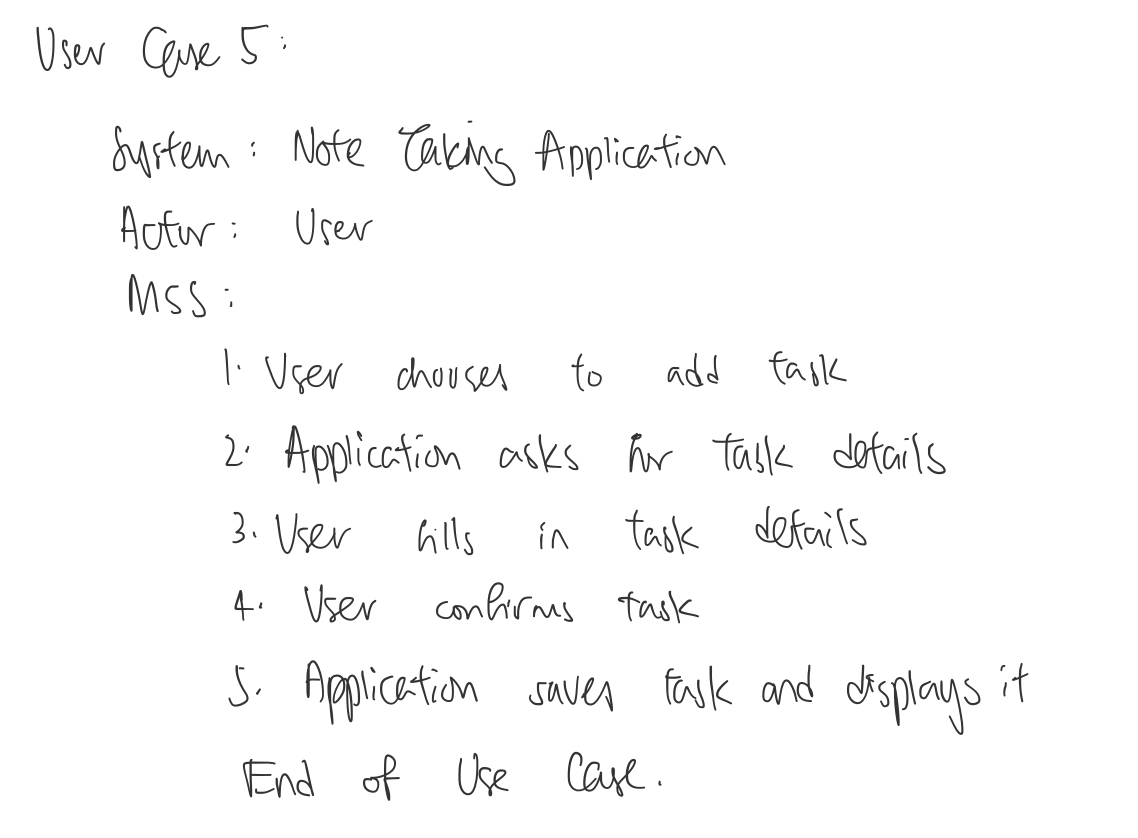 User Case 5:
System: Note Taking Application
Actor: User
MSS:
1. User chooses to add task
2. Application asks for task details
3. User fills in task details
4. User confirms task
5. Application saves task and displays it
End of Use Case.